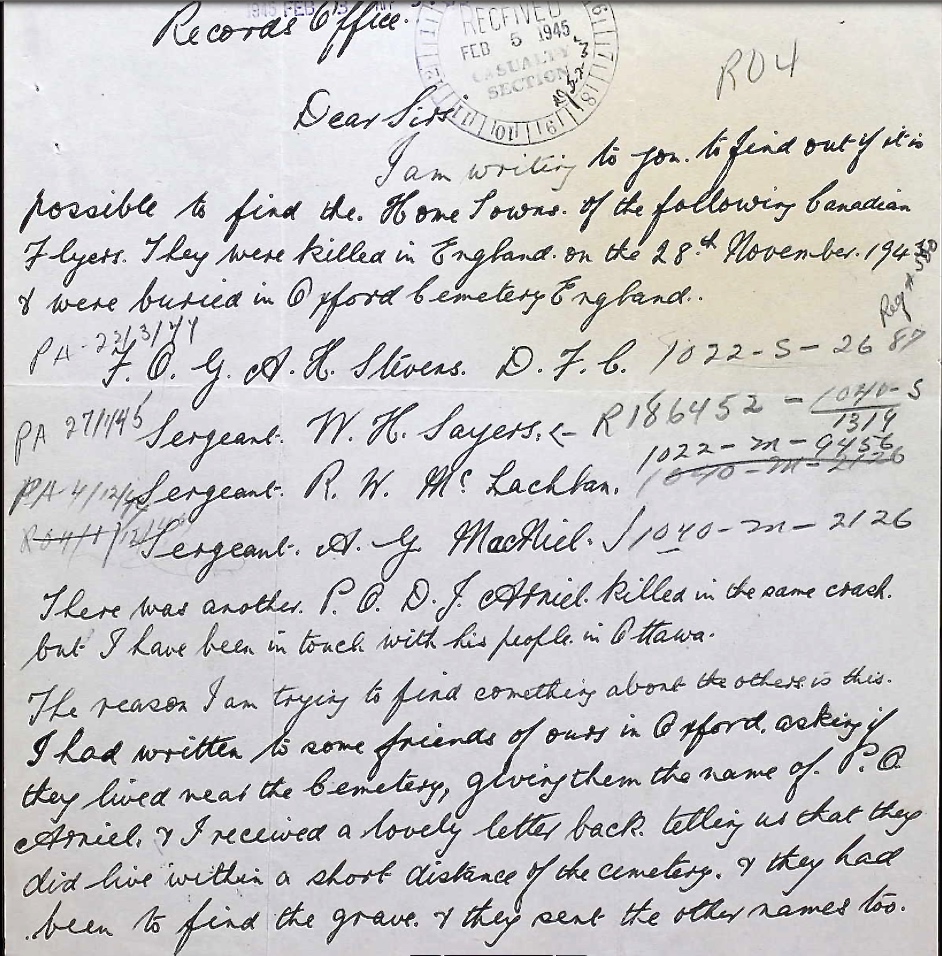 1945 FEB
Records Office.
RECEIVED
FEB 5 1945
CASUALTY
SECTION
R04
Dear Sirs
I am writing to you. to find out if it is
possible to find the. Home Towns. of the following Canadian
Flyers. They were killed in England. on the 28th November. 194
& were buried in Oxford Cemetery England..
PA-22/3/44
F. O. G. A. H. Stevens. D. F. C. 1022-S-26 87
PA 27/1/45 Sergeant. W. H. Sayers. R186452 - 1040-S
1319
1022-M-9456
PA-4/12/44 Sergeant. R. W. Mc Lachlan. 1040-M-2126
Sergeant. A. G. MacNiel. 1040-M-2126
There was another. P. O. D. J. Arniel. killed in the same crash.
but I have been in touch with his people. in Ottawa.
The reason I am trying to find something about the others is this.
I had written to some friends of ours in Oxford. asking if
they lived near the Cemetery, giving them the name of. P. O.
Arniel. & I received a lovely letter back. telling us that they
did live within a short distance of the cemetery. & they had
been to find the grave. & they sent the other names too.